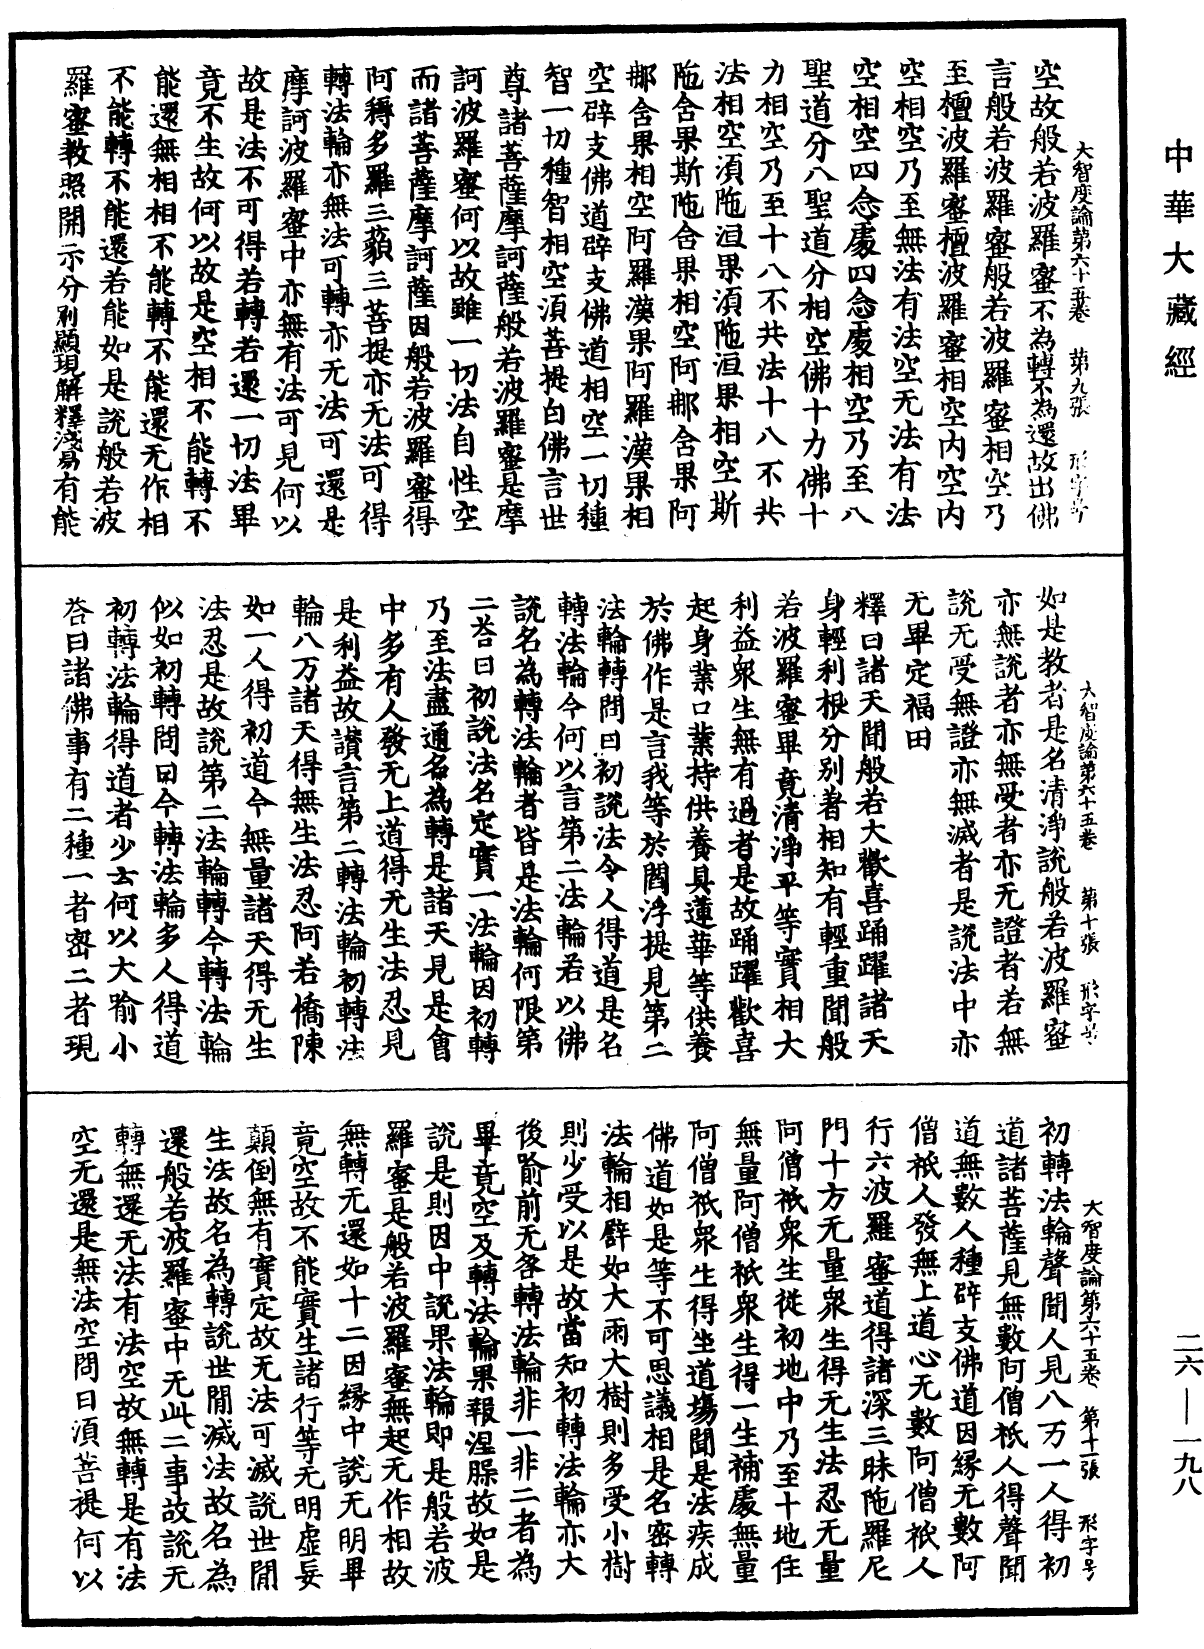 中華大藏經
大智度論第六十五卷　第九張　形字号
空故般若波羅蜜不為轉不為還故出佛
言般若波羅蜜般若波羅蜜相空乃
至檀波羅蜜檀波羅蜜相空內空內
空相空乃至無法有法空无法有法
空相空四念處四念處相空乃至八
聖道分八聖道分相空佛十力佛十
力相空乃至十八不共法十八不共
法相空須陁洹果須陁洹果相空斯
陁含果斯陁含果相空阿那含果阿
那含果相空阿羅漢果阿羅漢果相
空辟支佛道辟支佛道相空一切種
智一切種智相空須菩提白佛言世
尊諸菩薩摩訶薩般若波羅蜜是摩
訶波羅蜜何以故雖一切法自性空
而諸菩薩摩訶薩因般若波羅蜜得
阿耨多羅三藐三菩提亦无法可得
轉法輪亦無法可轉亦无法可還是
摩訶波羅蜜中亦無有法可見何以
故是法不可得若轉若還一切法畢
竟不生故何以故是空相不能轉不
能還無相相不能轉不能還无作相
不能轉不能還若能如是說般若波
羅蜜教照開示分別顯現解釋淺易有能
大智度論第六十五卷　第十張　形字号
如是教者是名清淨說般若波羅蜜
亦無說者亦無受者亦无證者若無
說无受無證亦無滅者是說法中亦
无畢定福田
釋曰諸天聞般若大歡喜踊躍諸天
身輕利根分別著相知有輕重聞般
若波羅蜜畢竟清淨平等實相大
利益眾生無有過者是故踊躍歡喜
起身業口業持供養具蓮華等供養
於佛作是言我等於閻浮提見第二
法輪轉問曰初說法令人得道是名
轉法輪今何以言第二法輪若以佛
說名為轉法輪者皆是法輪何限第
二荅曰初說法名定實一法輪因初轉
乃至法盡通名為轉是諸天見是會
中多有人發无上道得无生法忍見
是利益故讚言第二轉法輪初轉法
輪八万諸天得無生法忍阿若憍陳
如一人得初道今無量諸天得无生
法忍是故說第二法輪轉今轉法輪
似如初轉問曰今轉法輪多人得道
初轉法輪得道者少云何以大喻小
荅曰諸佛事有二種一者密二者現
大智度論第六十五卷　第十一張　形字号
初轉法輪聲聞人見八万一人得初
道諸菩薩見無數阿僧祇人得聲聞
道無數人種辟支佛道因緣无數阿
僧祇人發無上道心无數阿僧祇人
行六波羅蜜道得諸深三昧陁羅尼
門十方无量眾生得无生法忍无量
阿僧祇眾生從初地中乃至十地住
無量阿僧祇眾生得一生補處無量
阿僧祇眾生得坐道場聞是法疾成
佛道如是等不可思議相是名密轉
法輪相譬如大雨大樹則多受小樹
則少受以是故當知初轉法輪亦大
後喻前无咎轉法輪非一非二者為
畢竟空及轉法輪果報涅槃故如是
說是則因中說果法輪即是般若波
羅蜜是般若波羅蜜無起无作相故
無轉无還如十二因緣中說无明畢
竟空故不能實生諸行等无明虛妄
顛倒無有實定故无法可滅說世間
生法故名為轉說世間滅法故名為
還般若波羅蜜中无此二事故說无
轉無還无法有法空故無轉是有法
空无還是無法空問曰須菩提何以
二六—一九八